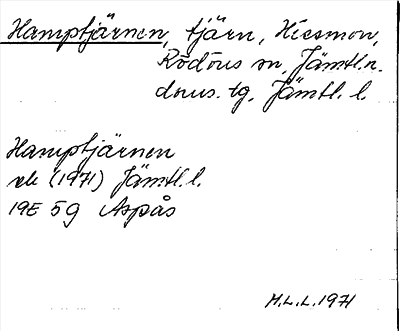 Hamptjärnen, tjärn, Hissmon,
Rödöns sn, Jämtl. n.
doms. tg, Jämtl. l.
Hamptjärnen
ek (1971) Jämtl. l.
19E 5g Aspås
M.L.L. 1971